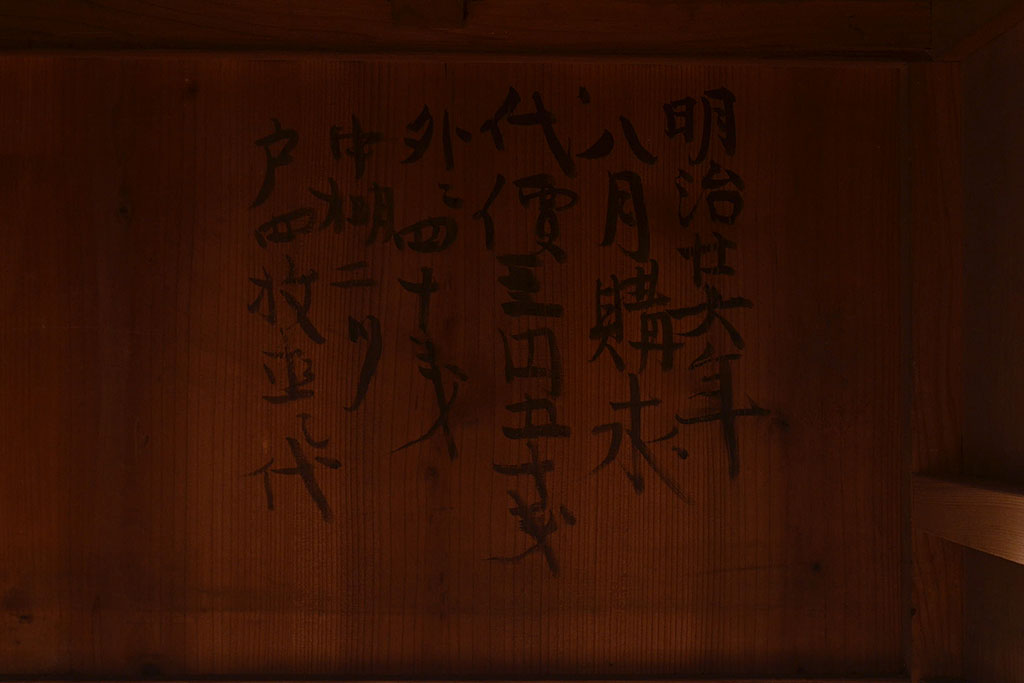 明治廿六年
八月購求
代價三円五十戋
外ニ四十戋
中棚二ツ
戸四枚直シ代